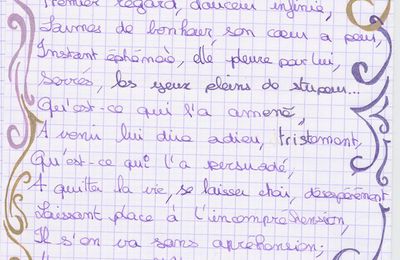 Premier regard, douceur infinie,
Larmes de bonheur, son cœur a peur,
Instant éphémère, elle pleure par lui,
Serrés, les yeux pleins de stupeur...
Qu'est-ce qui l'a amené,
A venir lui dire adieu, tristement,
Qu'est-ce qui l'a persuadé,
A quitter la vie, se laisser choir, désespérément
Laissant place à l'incompréhension,
Il s'en va sans appréhension;